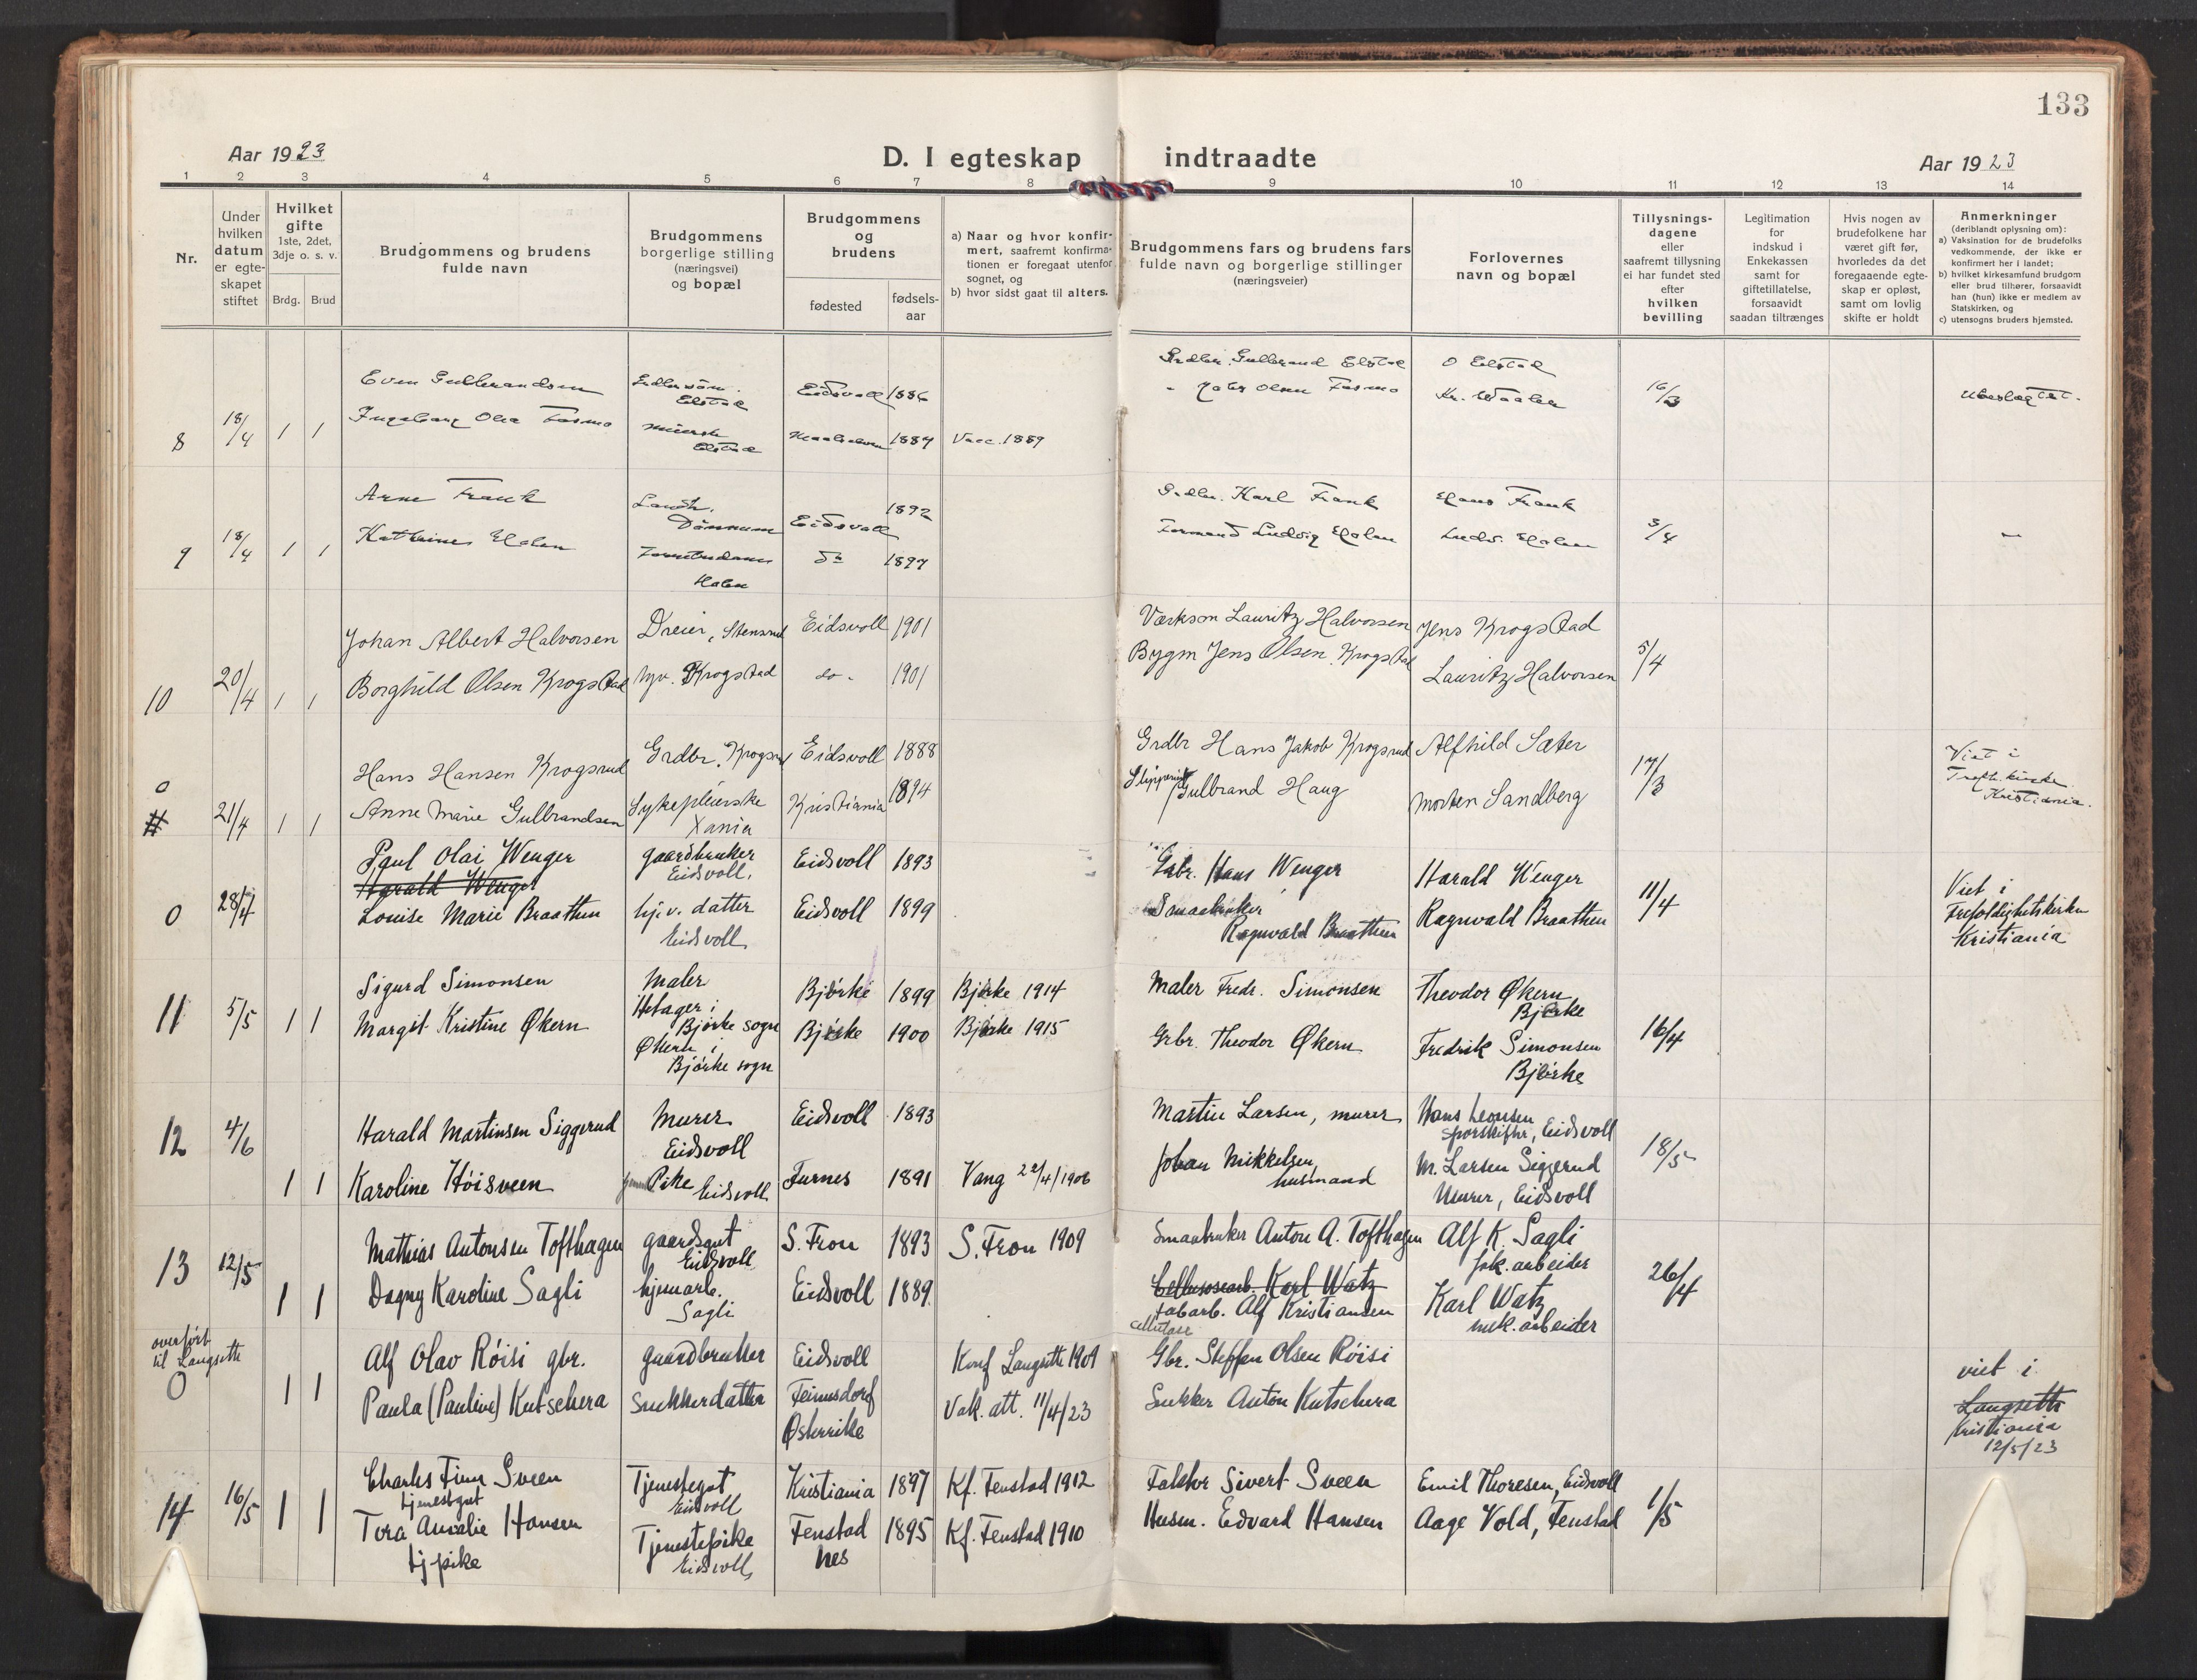 133
Aar 1923
D. I egteskap indtraadte
Aar 1923
1 2 3 4 5 6 7 8 9 10 11 12 13 14
Nr.
Under hvilken datum er egte-skapet stiftet
Hvilket gifte
1ste, 2det, 3dje o. s. v.
Brdg. Brud
Brudgommens og brudens fulde navn
Brudgommens borgerlige stilling (næringsvei) og bopæl
Brudgommens og brudens
fødested
fødsels-aar
a) Naar og hvor konfir-mert, saafremt konfirma-tionen er foregaat utenfor sognet, og
b) hvor sidst gaat til alters.
Brudgommens fars og brudens fars fulde navn og borgerlige stillinger (næringsveier)
Forlovernes navn og bopæl
Tillysnings-dagene eller saafremt tillysning ei har fundet sted efter hvilken bevilling
Legitimation for indskud i Enkekassen samt for giftetillatelse, forsaavidt saadan tiltrænges
Hvis nogen av brudefolkene har været gift før, hvorledes da det foregaaende egte-skap er opløst, samt om lovlig skifte er holdt
Anmerkninger (deriblandt oplysning om):
a) Vaksination for de brudefolks vedkommende, der ikke er konfirmert her i landet;
b) hvilket kirkesamfund brudgom eller brud tilhører, forsaavidt han (hun) ikke er medlem av Statskirken, og
c) utensogns bruders hjemsted.
8 18/4 1 1
Even Gulbrandsen
Elstad
Eidsvoll 1886
Grdbr. Gulbrand Elstad
O Elstad
16/3
Ubeslægtet.
Ingeborg Olea Fosmo
Meierske
Elstad
Maalselven 1889 Vacc. 1889
Olsen Fosmo
Kr. Waaler
9 18/4 1 1
Arne Frank
Landh.
Dønnum
Eidsvoll 1892
Grdbr. Karl Frank
Hans Frank
3/4
—
Kathrine Holen
Holen
do 1897
Formand Ludvig Holen
Ludv. Holen
10 20/4 1 1
Johan Albert Halvorsen
Dreier, Stensrud
Eidsvoll 1901
Værksm Lauritz Halvorsen
Jens Krogstad
5/4
Borghild Olsen Krogstad
hjv. Krogstad
do - 1901
Bygm Jens Olsen Krogstad
Lauritz Halvorsen
0 # 21/4 1 1
Hans Hansen Krogsrud
Grdbr. Krogsrud
Eidsvoll 1888
Grdbr Hans Jakob Krogsrud
Alfhild Sæter
17/3
Viet i
Trefh.kirke
Kristiania.
Anne Marie Gulbrandsen
Sykepleierske
Xania
Kristiania 1894
Gulbrand Haug
Morten Sandberg
0 28/4
Paul Olai Wenger
Harald Wenger
gaardbruker
Eidsvoll.
Eidsvoll 1893
Gabr. Hans Wenger
Harald Wenger
11/4
Viet i
Trefoldighetskirken
Kristiania
Louise Marie Braathen
hj.v. datter
Eidsvoll
Eidsvoll 1899
Smaabruker
Ragnvald Braathen
Ragnvald Braathen
11 5/5 1 1
Sigurd Simonsen
Maler
Hetager i
Bjørke sogn
Bjørke 1899 Bjørke 1914
Maler Fredr. Simonsen
Theodor Økern
Bjørke
16/4
Margit Kristine Økern
Økern i
Bjørke sogn
Bjørke 1900 Bjørke 1915
Grbr. Theodor Økern
Fredrik Simonsen
Bjørke
12 4/6 1 1
Harald Martinsen Siggerud
Murer
Eidsvoll
Eidsvoll 1893
Martin Larsen, murer
Hans Leonsen
sporskifter, Eidsvoll
18/5
Karoline Høisveen
Pike Eidsvoll
Furnes 1891 Vang 22/4/1906
Johan Mikkelsen,
husmand
M. Larsen Siggerud
Murer, Eidsvoll
13 12/5 1 1
Mathias Antonsen Tofthagen
gaardsgut
Eidsvoll
S. Fron 1893 S. Fron 1909
Smaabruker Anton A. Tofthagen
Alf K. Sagli
fak. arbeider
26/4
Dagny Karoline Sagli
hjemarb.
Sagli
Eidsvoll 1889
Cellulosearb. Karl Watz
fabarb. Alf Kristiansen
cellulose
Karl Watz
mek. arbeider
overført
til Langseth
0 1 1
Alf Olav Røisi gbr.
gaardbruker
Eidsvoll
Konf Langseth 1901
Gbr. Steffen Olsen Røisi
viet i
Langseth
Kristiania
12/5/23
Paula (Pauline) Kutschera
Snekkerdatter
Østerrike
Vak. att. 11/4/23
Snekker Anton Kutschera
14 16/5 1 1
Charles Finn Sveen
tjenestgut
Tjenestegut
Eidsvoll
Kristiania 1897 Kf. Fenstad 1912
Faktor Sivert Sveen
Emil Thoresen, Eidsvoll
1/5
Tora Amalie Hansen
tj pike
Tjenestepike
Eidsvoll
Fenstad
Nes
1895 Kf. Fenstad 1910
Husm. Edvard Hansen
Aage Vold, Fenstad